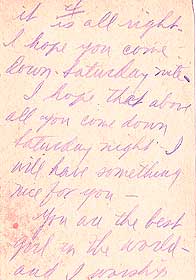 it is all right
I hope you come
down Saturday nite-
I hope that above
all you come down
Saturday night. I
will have something
nice for you -
You are the best
girl in the world-
and I worship